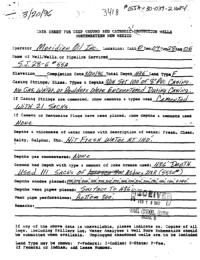 3/20/96 3418 #55A-30-039-21674
DATA SHEET FOR DEEP GROUND BED CATHODIC PROTECTION WELLS
NORTHWESTERN NEW MEXICO
Operator Meridian Oil Inc. Location: Unit
Name of Well/Wells or Pipeline Serviced
S.J. 28-6 #55A
Elevation Completion Date Total Depth 486 Land Type F
Casing Strings, Sizes, Types & Depths Set 100' of 8" PVC Casing.
No Gas, Water, or Boulders Were Encountered During Casing.
If Casing Strings are cemented, show amounts & types used Cemented
With 21 Sacks
If Cement or Bentonite Plugs have been placed, show depths & amounts used
None
Depths & thickness of water zones with description of water: Fresh, Clear,
Salty, Sulphur, Etc. Hit Fresh Water At 110'.
Depths gas encountered: None
Ground bed depth with type & amount of coke breeze used: 486' Depth
Used 111 Sacks of Asbury
Depths anodes placed:
Depths vent pipes placed: Surface To 486'
Vent pipe perforations: Bottom
Remarks:
If any of the above data is unavailable, please indicate so. Copies of all
logs, including Drillers Log, Water Analyses & Well Bore Schematics should
be submitted when available. Unplugged abandoned wells are to be included.
Land Type may be shown: F-Federal; I-Indian; S-State; P-Fee.
If Federal or Indian, add Lease Number.